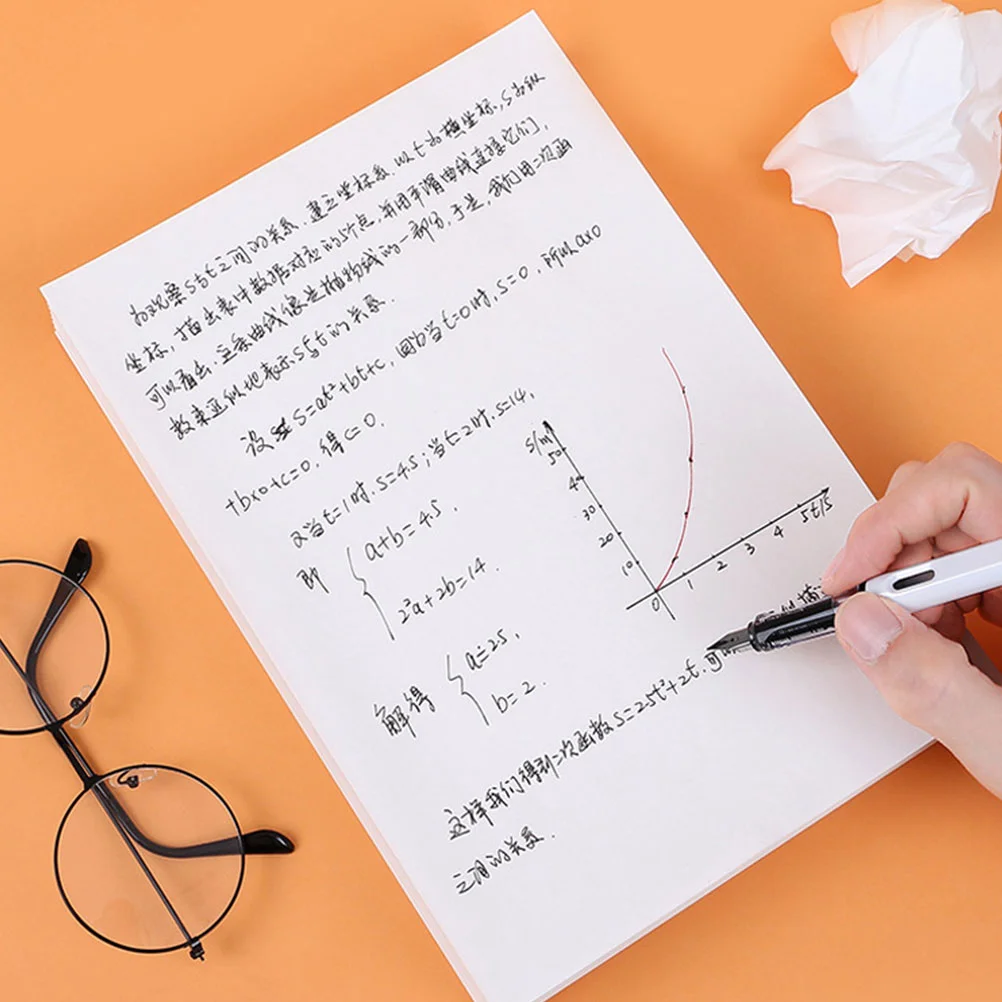 为观察S与t之间的关系,建立坐标系,以t为横坐标,S为纵
坐标,描出表中数据对应的5个点,并用平滑曲线连接它们,
可以看出,这条曲线像是抛物线的一部分,于是,我们用二次函
数来近似地表示S与t的关系.
设 S=at²+bt+c,因为当t=0时,S=0,所以a×0
+b×0+c=0,得c=0.
又当t=1时,S=4.5;当t=2时,S=14,
即 a+b=4.5,
2²a+2b=14.
解得 a=2.5,
b=2.
S/m
50
40
30
20
10
0 1 2 3 4 5 t/s
这样我们得到二次函数S=2.5t²+2t,可
之间的关系.